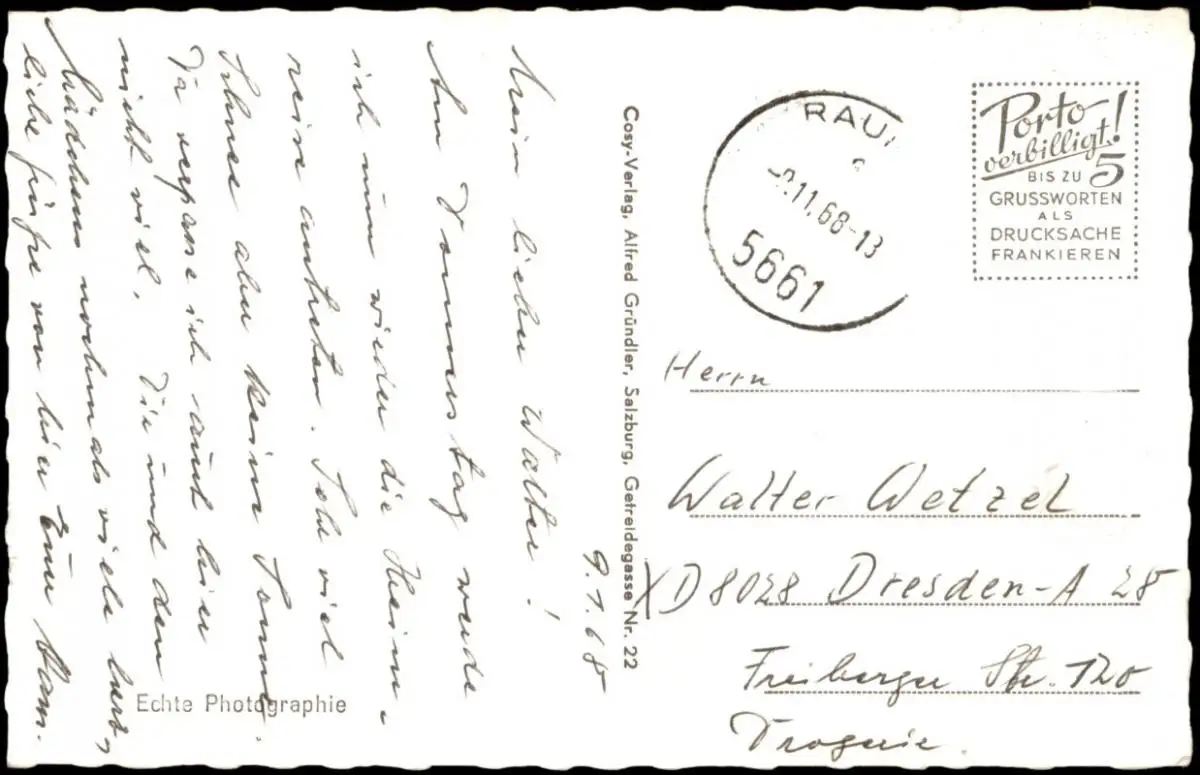 9.1.68
Mein lieber Walter!
Am Donnerstag werde
ich nun wieder die Heim-
reise antreten. Sehr viel
Schnee aber keine Sonne.
Da verpasse ich auch hier
nicht viel. Dir und den
Mädchens nochmals viele herz-
liche Grüße von hier Eure
Echte Photographie
Cosy-Verlag, Alfred Gründler, Salzburg, Getreidegasse Nr. 22
RAU
11.68-13
5661
Porto
verbilligt!
BIS ZU 5
GRUSSWORTEN
ALS
DRUCKSACHE
FRANKIEREN
Herrn
Walter Wetzel
XD 8028 Dresden-A 28
Freiberger Str. 120
Drogerie.